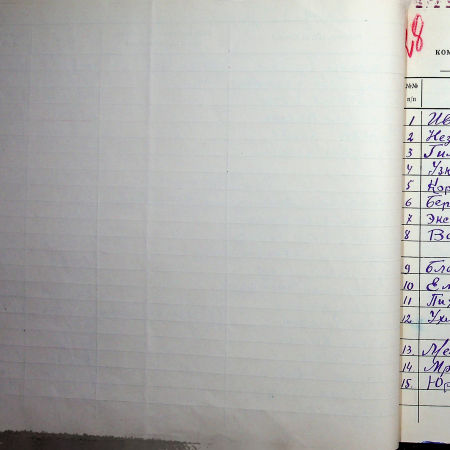 28
КОМ
№№
п/п
1 Ив
2 Нез
3 Гил
4 Узн
5 Кор
6 Бер
7 Экс
8 Во
9 Бла
10 Ел
11 Пи
12 Ухт
13. Ме
14. Мр
15. Юр